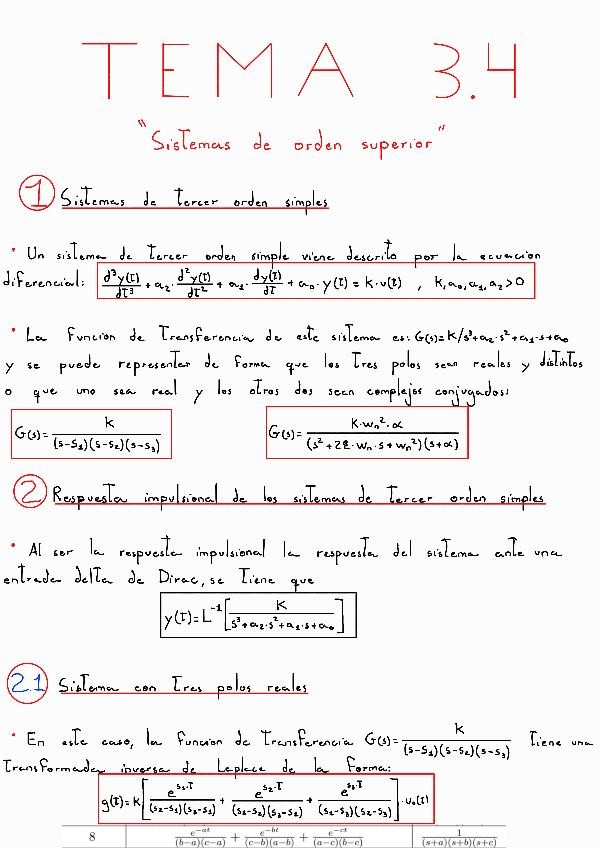 TEMA 3.4
"Sistemas de orden superior"
1 Sistemas de tercer orden simples
· Un sistema de tercer orden simple viene descrito por la ecuacion
diferencial: d³y(t)/dt³ + a₂· d²y(t)/dt² + a₁· dy(t)/dt + a₀·y(t) = K·u(t) , K, a₀, a₁, a₂ > 0
· La funcion de transferencia de este sistema es: G(s)=K/s³+a₂·s²+a₁·s+a₀
y se puede representar de forma que los tres polos sean reales y distintos
o que uno sea real y los otros dos sean complejos conjugados:
G(s) = K/((s-s₁)(s-s₂)(s-s₃)) G(s) = K·wₙ²·α/((s²+2ξ·wₙ·s+wₙ²)(s+α))
2 Respuesta impulsional de los sistemas de tercer orden simples
· Al ser la respuesta impulsional la respuesta del sistema ante una
entrada delta de Dirac, se tiene que
y(t) = L⁻¹[K/(s³+a₂·s²+a₁·s+a₀)]
2.1 Sistema con tres polos reales
· En este caso, la funcion de transferencia G(s) = K/((s-s₁)(s-s₂)(s-s₃)) tiene una
transformada inversa de Laplace de la forma:
g(t) = K[e^(s₁·t)/((s₂-s₁)(s₃-s₁)) + e^(s₂·t)/((s₁-s₂)(s₃-s₂)) + e^(s₃·t)/((s₁-s₃)(s₂-s₃))]·u₀(t)
8 e^(-at)/((b-a)(c-a)) + e^(-bt)/((c-b)(a-b)) + e^(-ct)/((a-c)(b-c)) 1/((s+a)(s+b)(s+c))